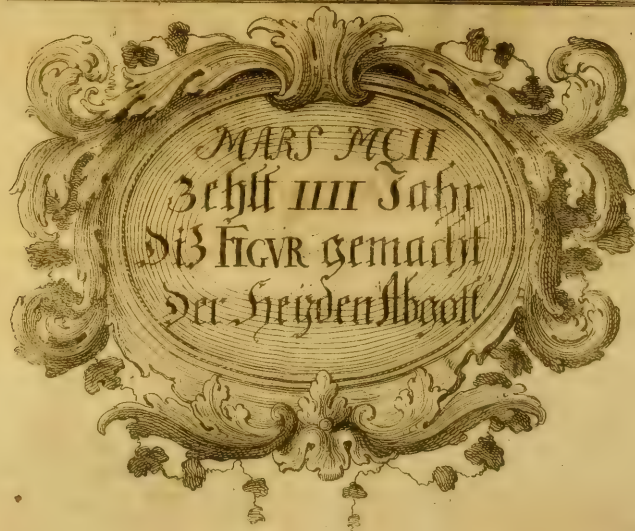 MARS MCII
Zehlt IIII Jahr
Diß FIGVR gemacht
Der Heyden Abgott